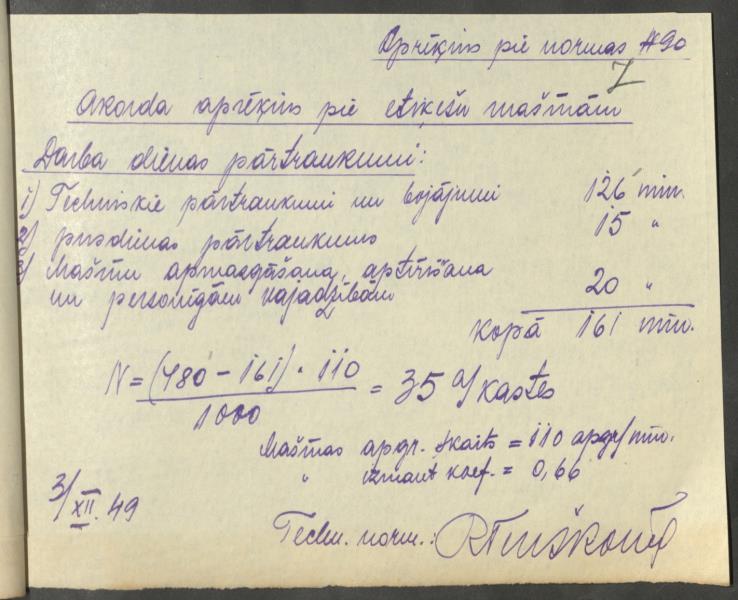 Aprēķins pie normas #90
Akorda aprēķins pie etiķešu mašīnām
Darba dienas pārtraukumi:
1) Techniskie pārtraukumi un bojājumi 126 min.
2) pusdienas pārtraukums 15 "
3) Mašīnu apmazgāšana, aptīrīšana
un personīgām vajadzībām 20 "
kopā 161 min.
N = (480 - 161) · 110 / 1000 = 35 kastes
Mašīnas apgr. skaits = 110 apgr/min.
" izmant koef. = 0,66
3/XII. 49
Techn. norm.: